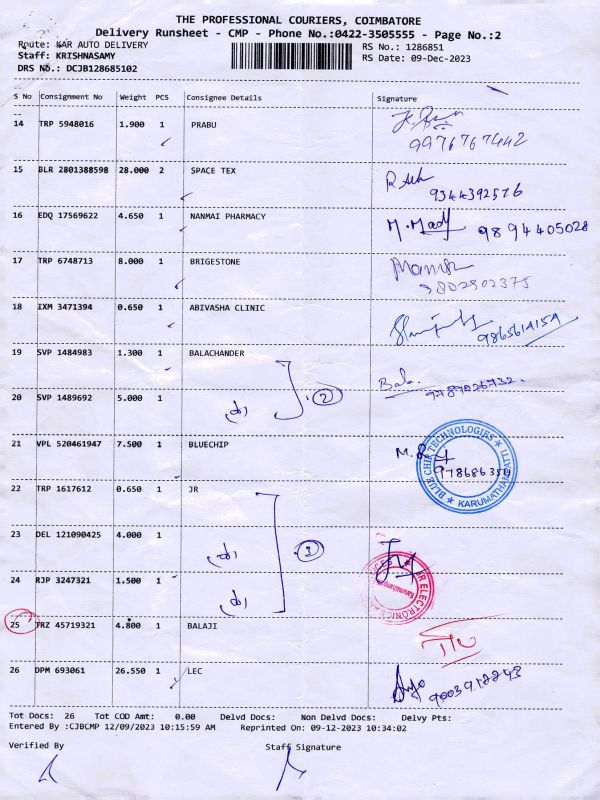 THE PROFESSIONAL COURIERS, COIMBATORE
Delivery Runsheet - CMP - Phone No.:0422-3505555 - Page No.:2
Route: KAR AUTO DELIVERY RS No.: 1286851
Staff: KRISHNASAMY RS Date: 09-Dec-2023
DRS No.: DCJB128685102
S No Consignment No Weight PCS Consignee Details Signature
14 TRP 5948016 1.900 1 PRABU
9976767442
15 BLR 2801388598 28.000 2 SPACE TEX
9344392576
16 EDQ 17569622 4.650 1 NANMAI PHARMACY M. Mady 9894405028
17 TRP 6748713 8.000 1 BRIGESTONE
9802902375
18 IXM 3471394 0.650 1 ABIVASHA CLINIC
9865614154
19 SVP 1484983 1.300 1 BALACHANDER Bala.
9789026732
20 SVP 1489692 5.000 1 2
21 VPL 520461947 7.500 1 BLUECHIP
BLUE CHIP TECHNOLOGIES
KARUMATHAMPATTI
22 TRP 1617612 0.650 1 JR
23 DEL 121090425 4.000 1 3
24 RJP 3247321 1.500 1
JR ELECTRONICS
25 TRZ 45719321 4.800 1 BALAJI
26 DPM 693061 26.550 1 LEC
9003912243
Tot Docs: 26 Tot COD Amt: 0.00 Delvd Docs: Non Delvd Docs: Delvy Pts:
Entered By :CJBCMP 12/09/2023 10:15:59 AM Reprinted On: 09-12-2023 10:34:02
Verified By Staff Signature